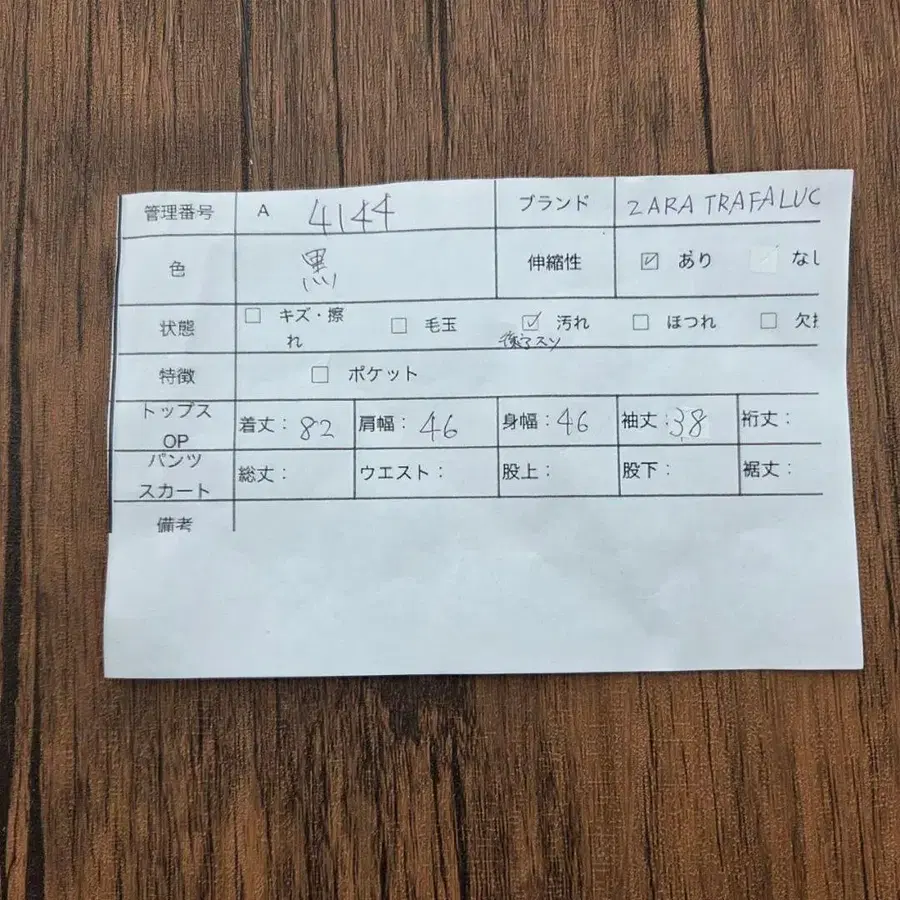 管理番号 A 4144 ブランド ZARA TRAFALUC
色 黒 伸縮性 ☑ あり なし
状態 ☐ キズ・擦れ ☐ 毛玉 ☑ 汚れ ☐ ほつれ ☐ 欠
特徴 ☐ ポケット
トップス OP 着丈: 82 肩幅: 46 身幅: 46 袖丈: 38 裄丈:
パンツ スカート 総丈: ウエスト: 股上: 股下: 裾丈:
備考